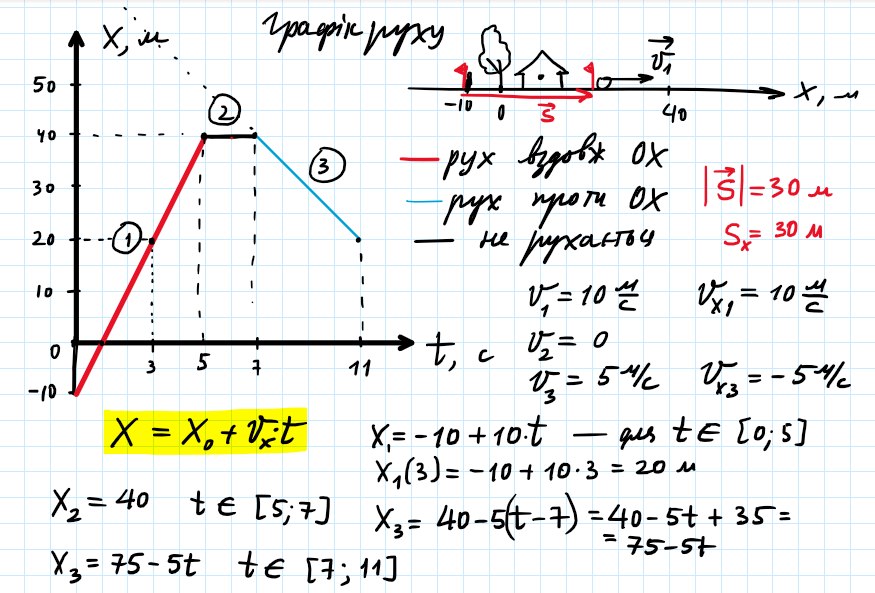 Графік руху
x, м
50
40
30
20
10
0
-10
3 5 7 11
t, с
① ② ③
v⃗₁
-10 0 40 x, м
s⃗
рух вздовж OX
рух проти OX
не рухається
|s⃗| = 30 м
Sₓ = 30 м
v₁ = 10 м/с vₓ₁ = 10 м/с
v₂ = 0
v₃ = 5 м/с vₓ₃ = -5 м/с
x = x₀ + vₓ·t
x₁ = -10 + 10·t — для t ∈ [0; 5]
x₁(3) = -10 + 10·3 = 20 м
x₂ = 40 t ∈ [5; 7]
x₃ = 40 - 5(t - 7) = 40 - 5t + 35 =
= 75 - 5t
x₃ = 75 - 5t t ∈ [7; 11]